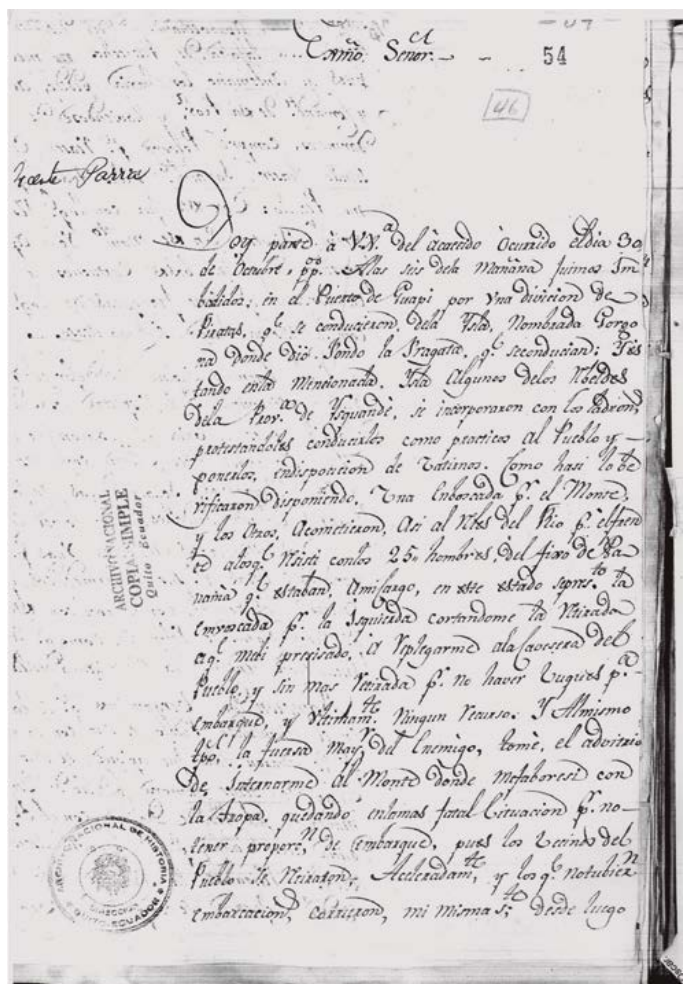 Exmo. Señor.
54
46
Vicente Parra
Doy parte à V.Va. del acaendo Ocurido eldia 30,,
de Octubre. ppo. Alas seis dela Mañana fuimos Im
badidos; en el Puerto de Guapi por Vna divicion de
Piratas, qe. se conducieron, dela Ysla, Nombrada Gorgo
na donde Dió fondo la Fragata, qe. seconducian; Yes
tando enla Mencionada Ysla Algunos delos Rbeldes
Dela Prova. de Ysquandé, se incorporaron con los ladrons,
protestandoles conducirlos como practicos al Pueblo y
ponerlos, endisposicion de Batirnos. Como hasi lo be
rificaron disponiendo, Vna Enborcada pr. el Monte,
y los Otros, Acometieron, Asi al del Rio pr. elfren
te alosqe. Resisti conlos 25,, hombres, del fixo de Pa
namá qe. estaban, Amicargo, en este estado Ia
emvoscada pr. la Isquierda cortandome la Retirada
aqe. mebi precisado, á Replegarme ala Cavesera del
Pueblo, y sin mas Retirada pr. no haver Buques pa.
embarque, y Ningun Recurso. Y Almismo
tpo. la fuersa mayr. del Enemigo, tomé, el advitrio
de, Internarme al Monte donde mefaboresi con
la tropa, quedando enlamas fatal Cituacion pr. no
tener proporcn. de Embarque, pues los Vecinos del
Pueblo se Retiraron, Aceleradamte. y los qe. notubiern
embarcacion, corrieron, mi misma desde luego
ARCHIVO NACIONAL
COPIA SIMPLE
Quito Ecuador
ARCHIVO NACIONAL DE HISTORIA
DIRECCION
QUITO-ECUADOR